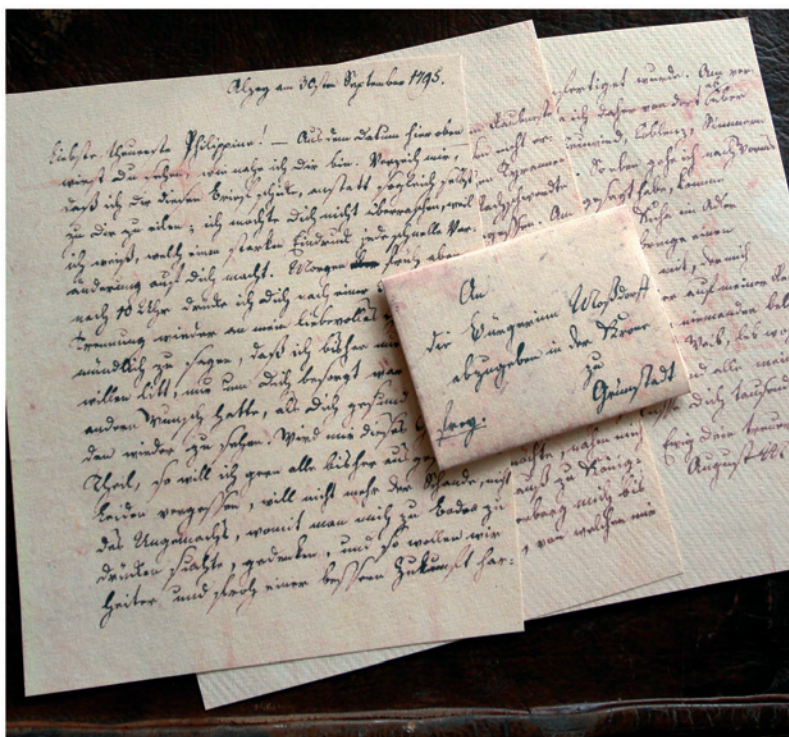 Alzey am 30sten September 1795.
Liebste theuerste Philippine! — Aus dem Datum hier oben
wirst Du sehen, wie nahe ich Dir bin. Verzeih mir,
daß ich dir diesen Brief schicke, anstatt sogleich selbst
zu dir zu eilen; ich mochte dich nicht überraschen, weil
ich weiß, welch einen starken Eindruck jede schnelle Ver-
änderung auf dich macht. Morgen früh aber
nach 10 Uhr drücke ich dich nach einer
Trennung wieder an mein liebevolles
mündlich zu sagen, daß ich bisher
willen litt, nur um dich besorgt war
andren Wunsch hatte, als dich gesund
den wieder zu sehen. Wird mir dieses
Theil, so will ich gern alle bisher aus
Leiden vergessen, will nicht mehr der Schande, nicht
des Ungemachs, womit man mich zu Boden zu
drücken suchte, gedenken, und so wollen wir
heiter und froh einer bessren Zukunft har-
An
die Bürgerinn Moßdorff
abzugeben in der Krone
zu
Grünstadt
frey.
nicht er-
Tyrannen
mochte, nahm mich
auß zu König-
mich bis
von welchem wir
gefertiget wurde. Am
ich daher von dort über
Neuwied, Coblenz, Simmern
So eben gehe ich nach Worms
gesagt habe, komme
bringe einen
mit, der mich
auf meiner
niemanden
Weib, lebe
und alle
dich tausend
Ewig dein treuer
August